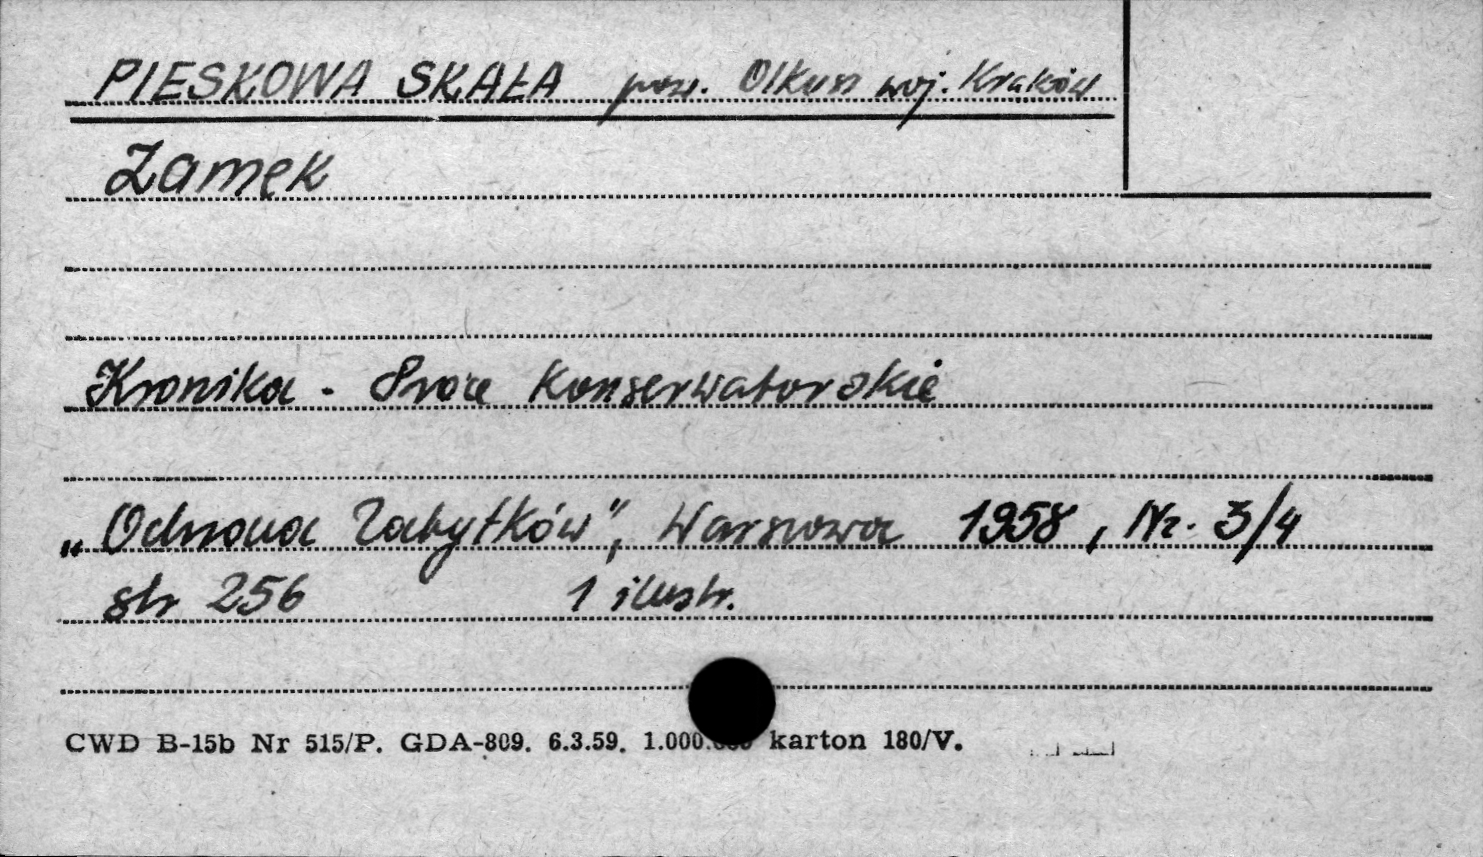 PIESKOWA SKAŁA pow. Olkusz woj. Kraków
Zamek
Kronika - Prace Konserwatorskie
„Ochrona Zabytków", Warszawa 1958, Nr. 3/4
str 256 1 ilustr.
CWD B-15b Nr 515/P. GDA-809. 6.3.59. 1.000.000 karton 180/V.